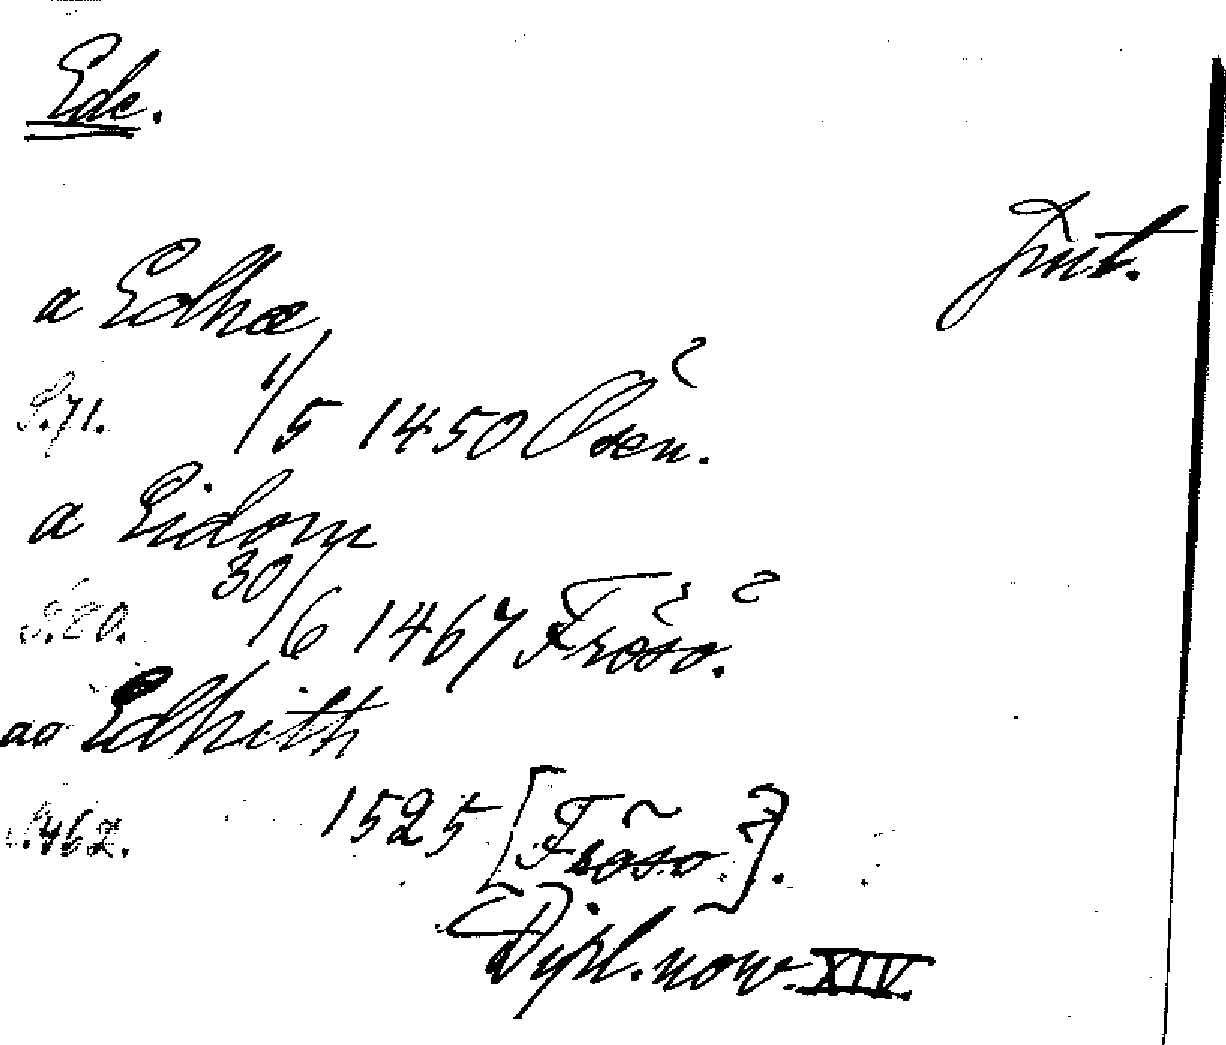 Ede.
Jmt.
a Edhæ
S. 71. 1/5 1450 Osen.
a Eidom
S. 80. 30/6 1467 Frösö.
aa Edhith
S. 462. 1525 [Frösö].
Dipl. norv. XIV.